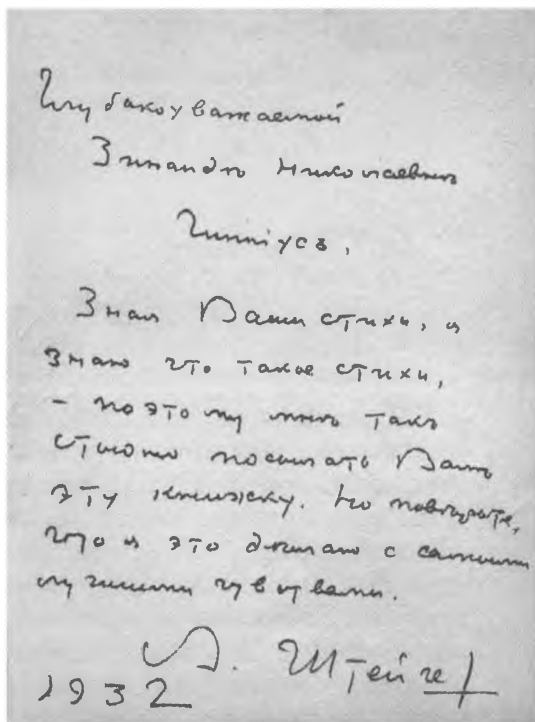 Глубокоуважаемой
Зинаидѣ Николаевнѣ
Гиппіусъ.
Зная Ваши стихи, я
знаю что такое стихи,
– поэтому мнѣ такъ
стыдно посылать Вамъ
эту книжку. Но повѣрьте,
что я это дѣлаю с самыми
лучшими чувствами.
А. Штейгер
1932